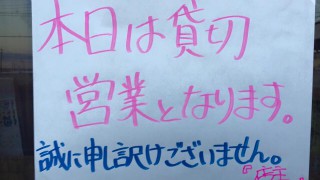 本日は貸切
営業となります。
誠に申し訳けございません。
『店主